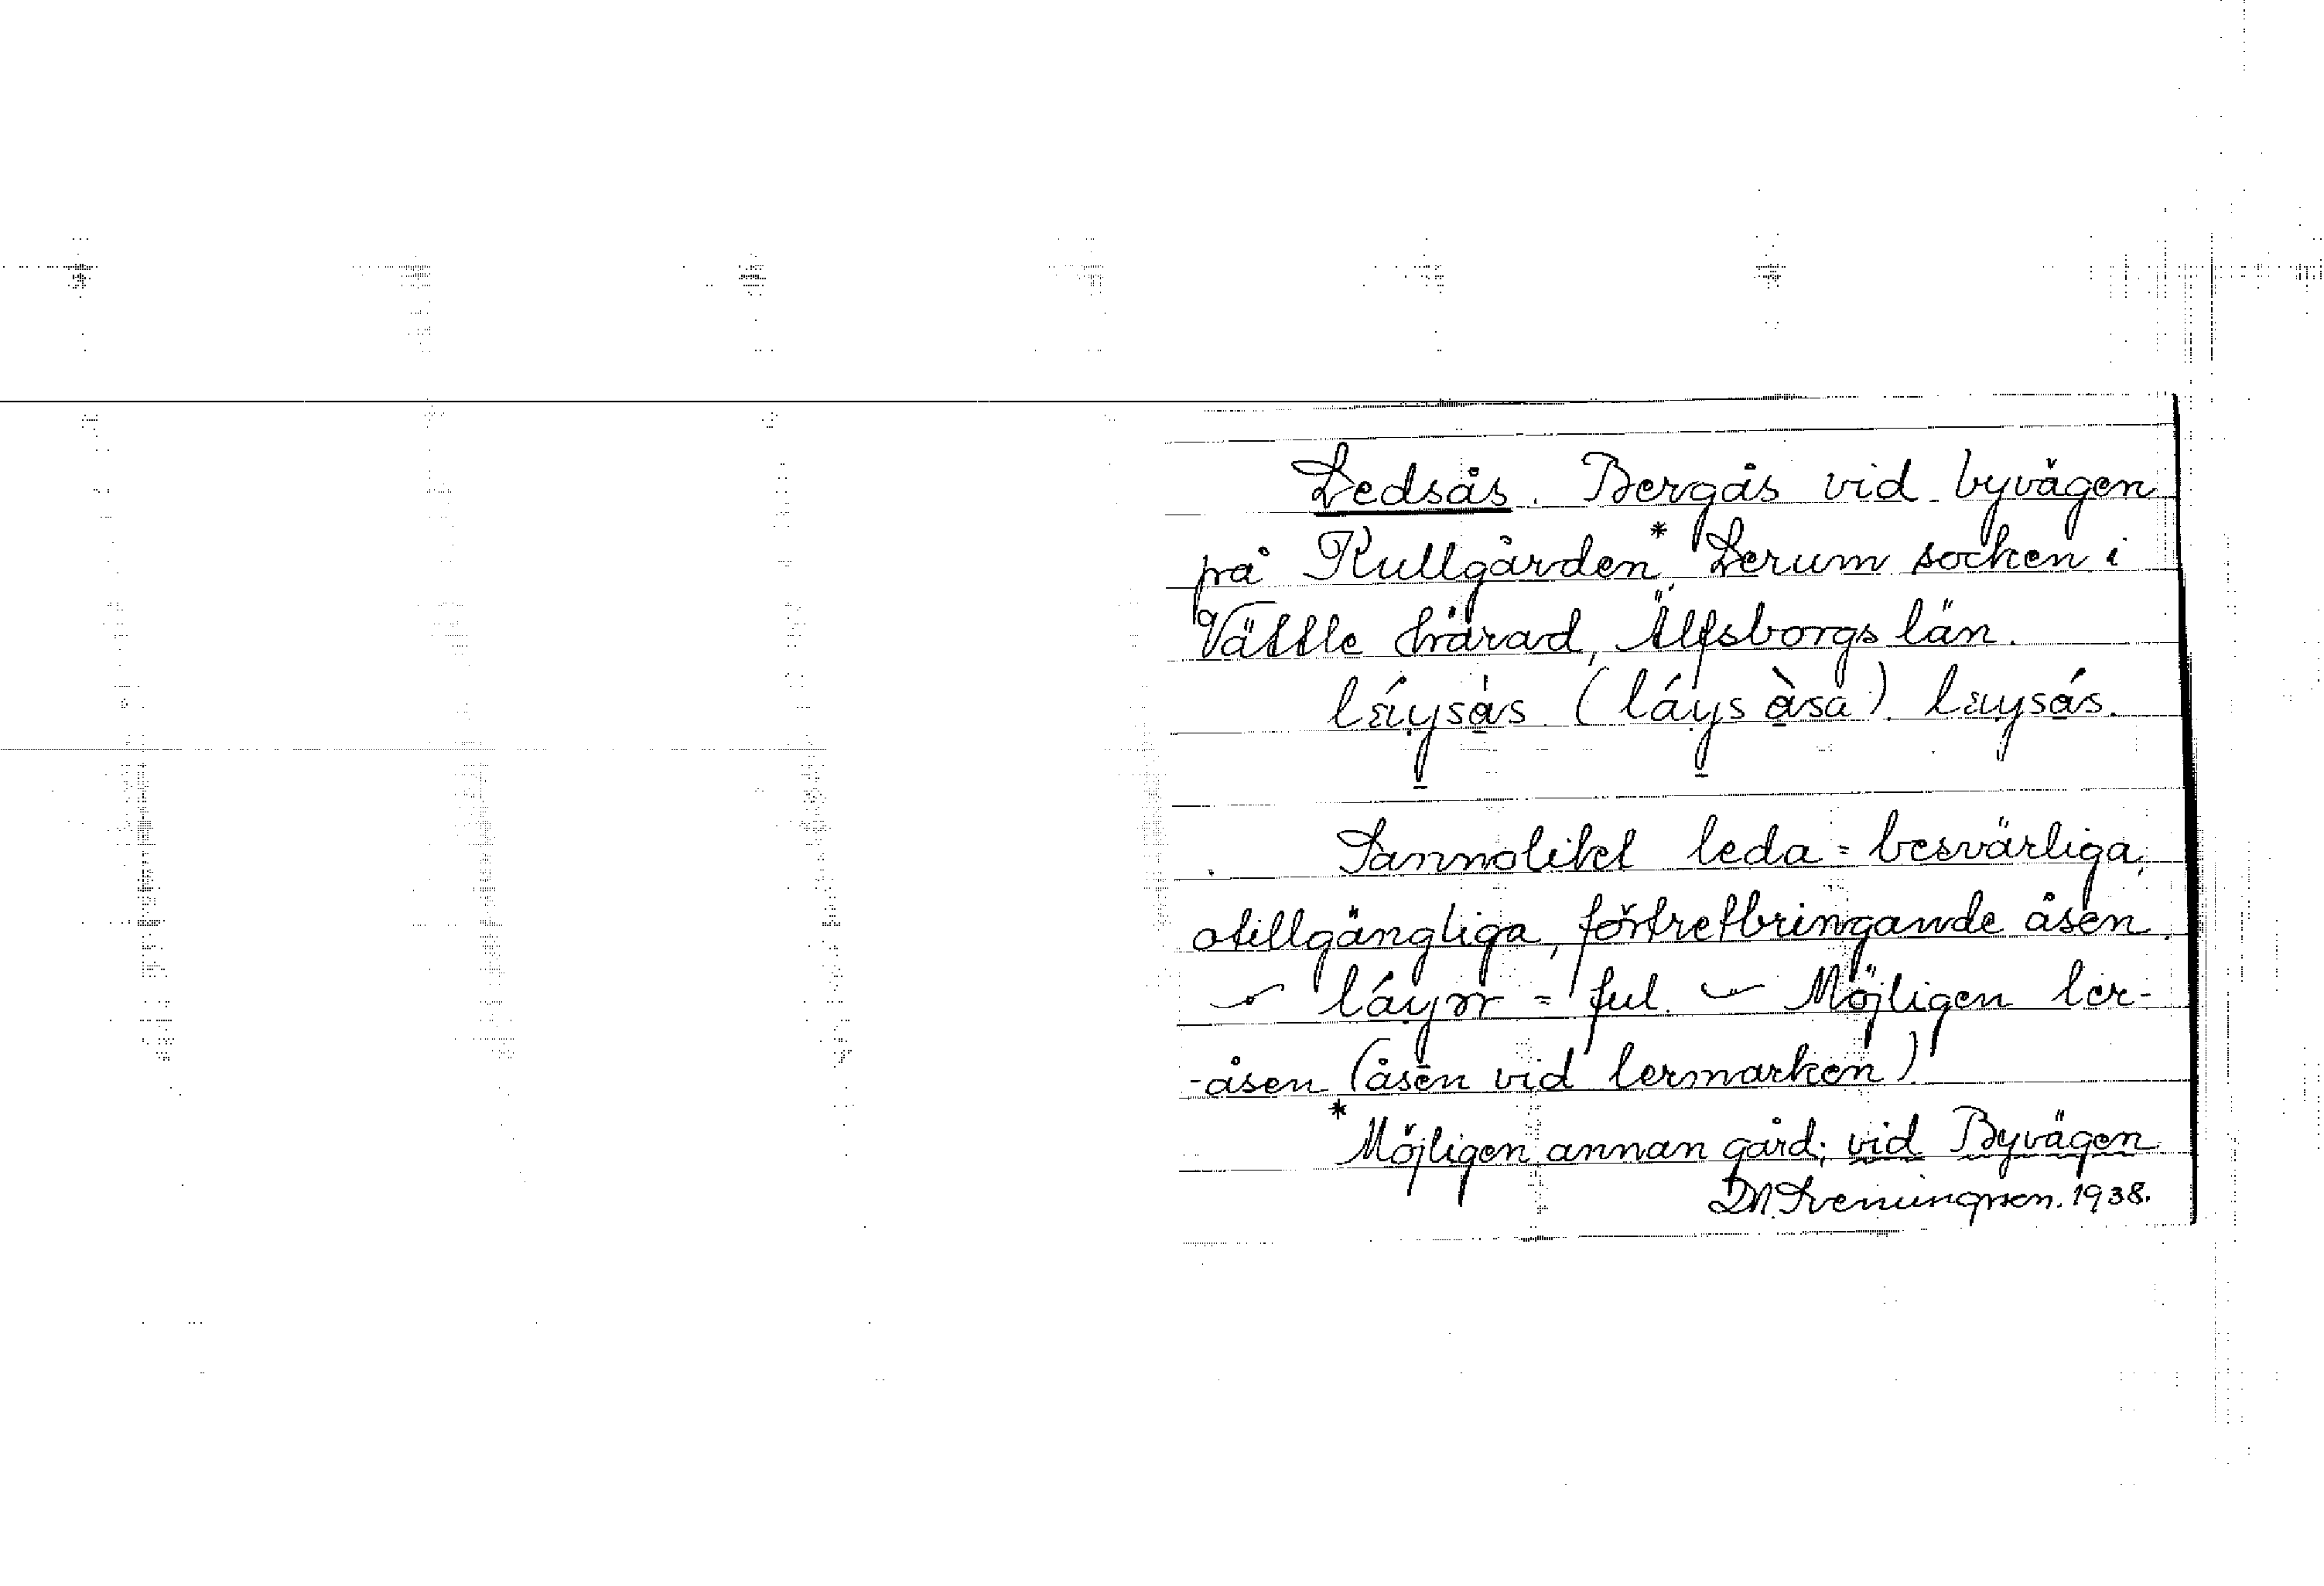 Ledsås. Bergås vid byvägen
på Kullgården*, Lerum socken i
Vättle härad, Älfsborgs län.
Sannolikt leda = besvärliga,
otillgängliga, förtretbringande åsen.
= ful. Möjligen ler-
-åsen (åsen vid lermarken)
* Möjligen annan gård; vid Byvägen
1938.